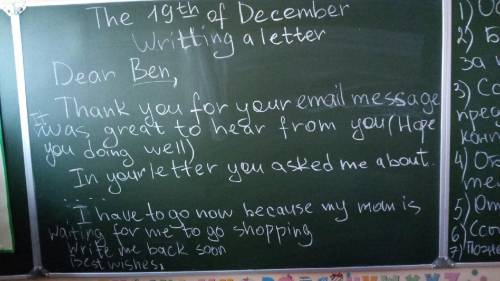 The 19th of December
Writting a letter
Dear Ben,
Thank you for your email message
It was great to hear from you (Hope
you doing well)
In your letter you asked me about...
....
I have to go now because my mom is
waiting for me to go shopping
Write me back soon
Best wishes,
1)
2) Б
за
3) Сс
4)
5) От
6) Ссы
7)